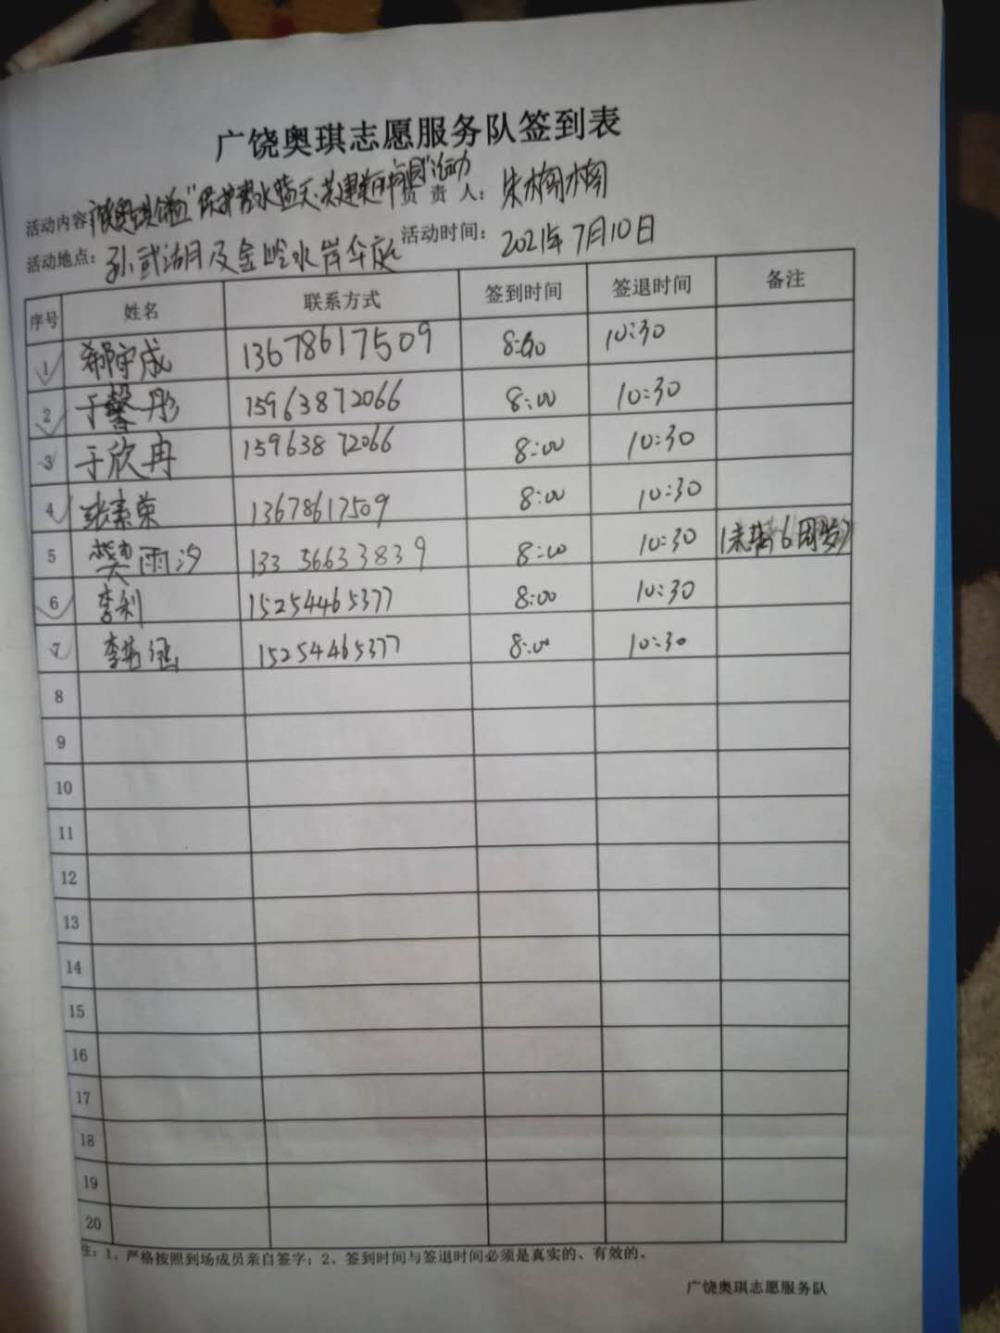 广饶奥琪志愿服务队签到表
活动内容：广饶奥琪公益"保护碧水蓝天·共建美丽家园"活动 负责人：朱楠楠
活动地点：孙武湖及金岭水岸华庭 活动时间：2021年7月10日
序号 姓名 联系方式 签到时间 签退时间 备注
1 守成 13678617509 8:00 10:30
2 于馨彤 15963872066 8:00 10:30
3 于欣冉 15963872066 8:00 10:30
4 张素荣 13678617509 8:00 10:30
5 樊雨汐 13356633839 8:00 10:30 (未满6周岁)
6 李利 15254465377 8:00 10:30
7 李涵 15254465377 8:00 10:30
8
9
10
11
12
13
14
15
16
17
18
19
20
注：1、严格按照到场成员亲自签字；2、签到时间与签退时间必须是真实的、有效的。
广饶奥琪志愿服务队